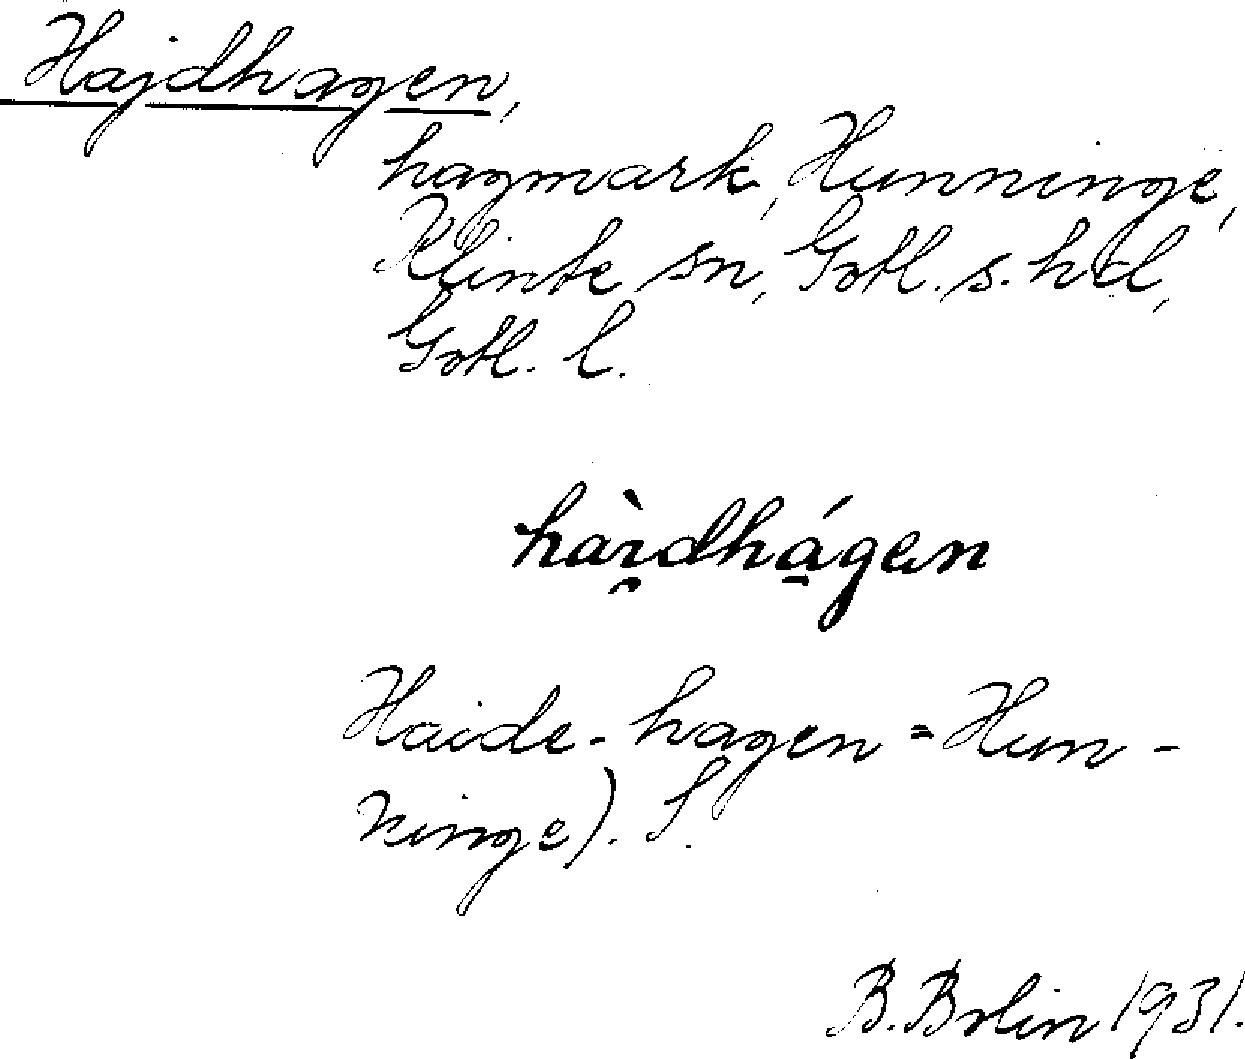 Hajdhagen,
hagmark, Hunninge,
Klinte sn, Gotl. s. hd,
Gotl. l.
hàı̯dhá̠gen
Haide-hagen = Hun-
ninge). S.
B. Bolin 1931.